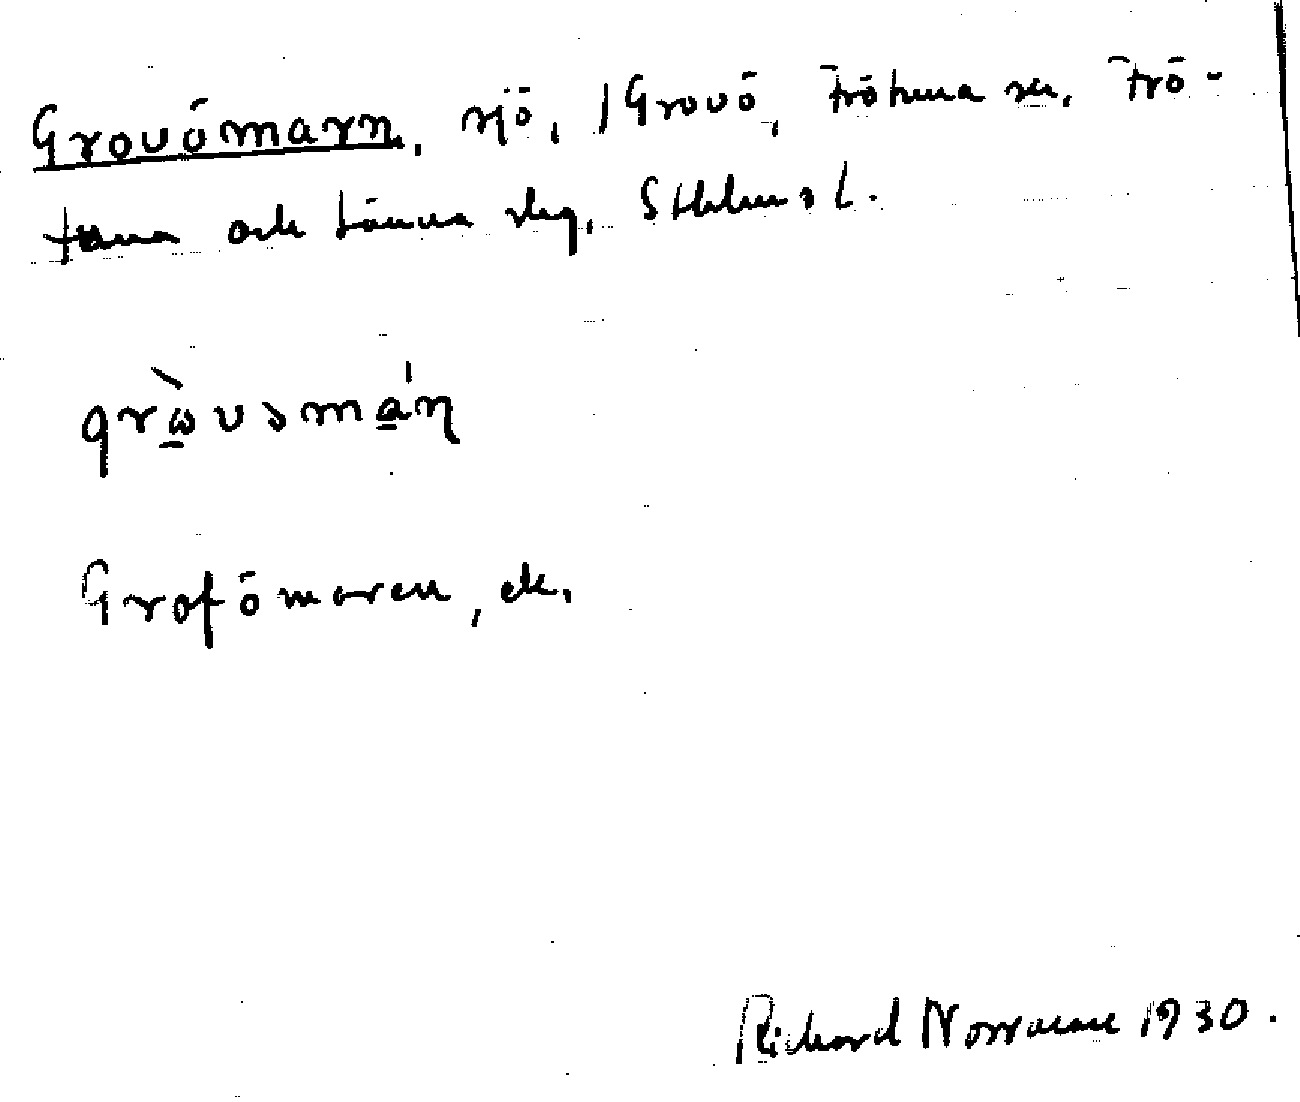 Grovömarn, sjö, /Grovö, Frötuna sn, Frö-
tuna och Länna skg, Sthlms L.
grὼvəmáꞃ
Grofömaren, ek.
Richard Norrman 1930.